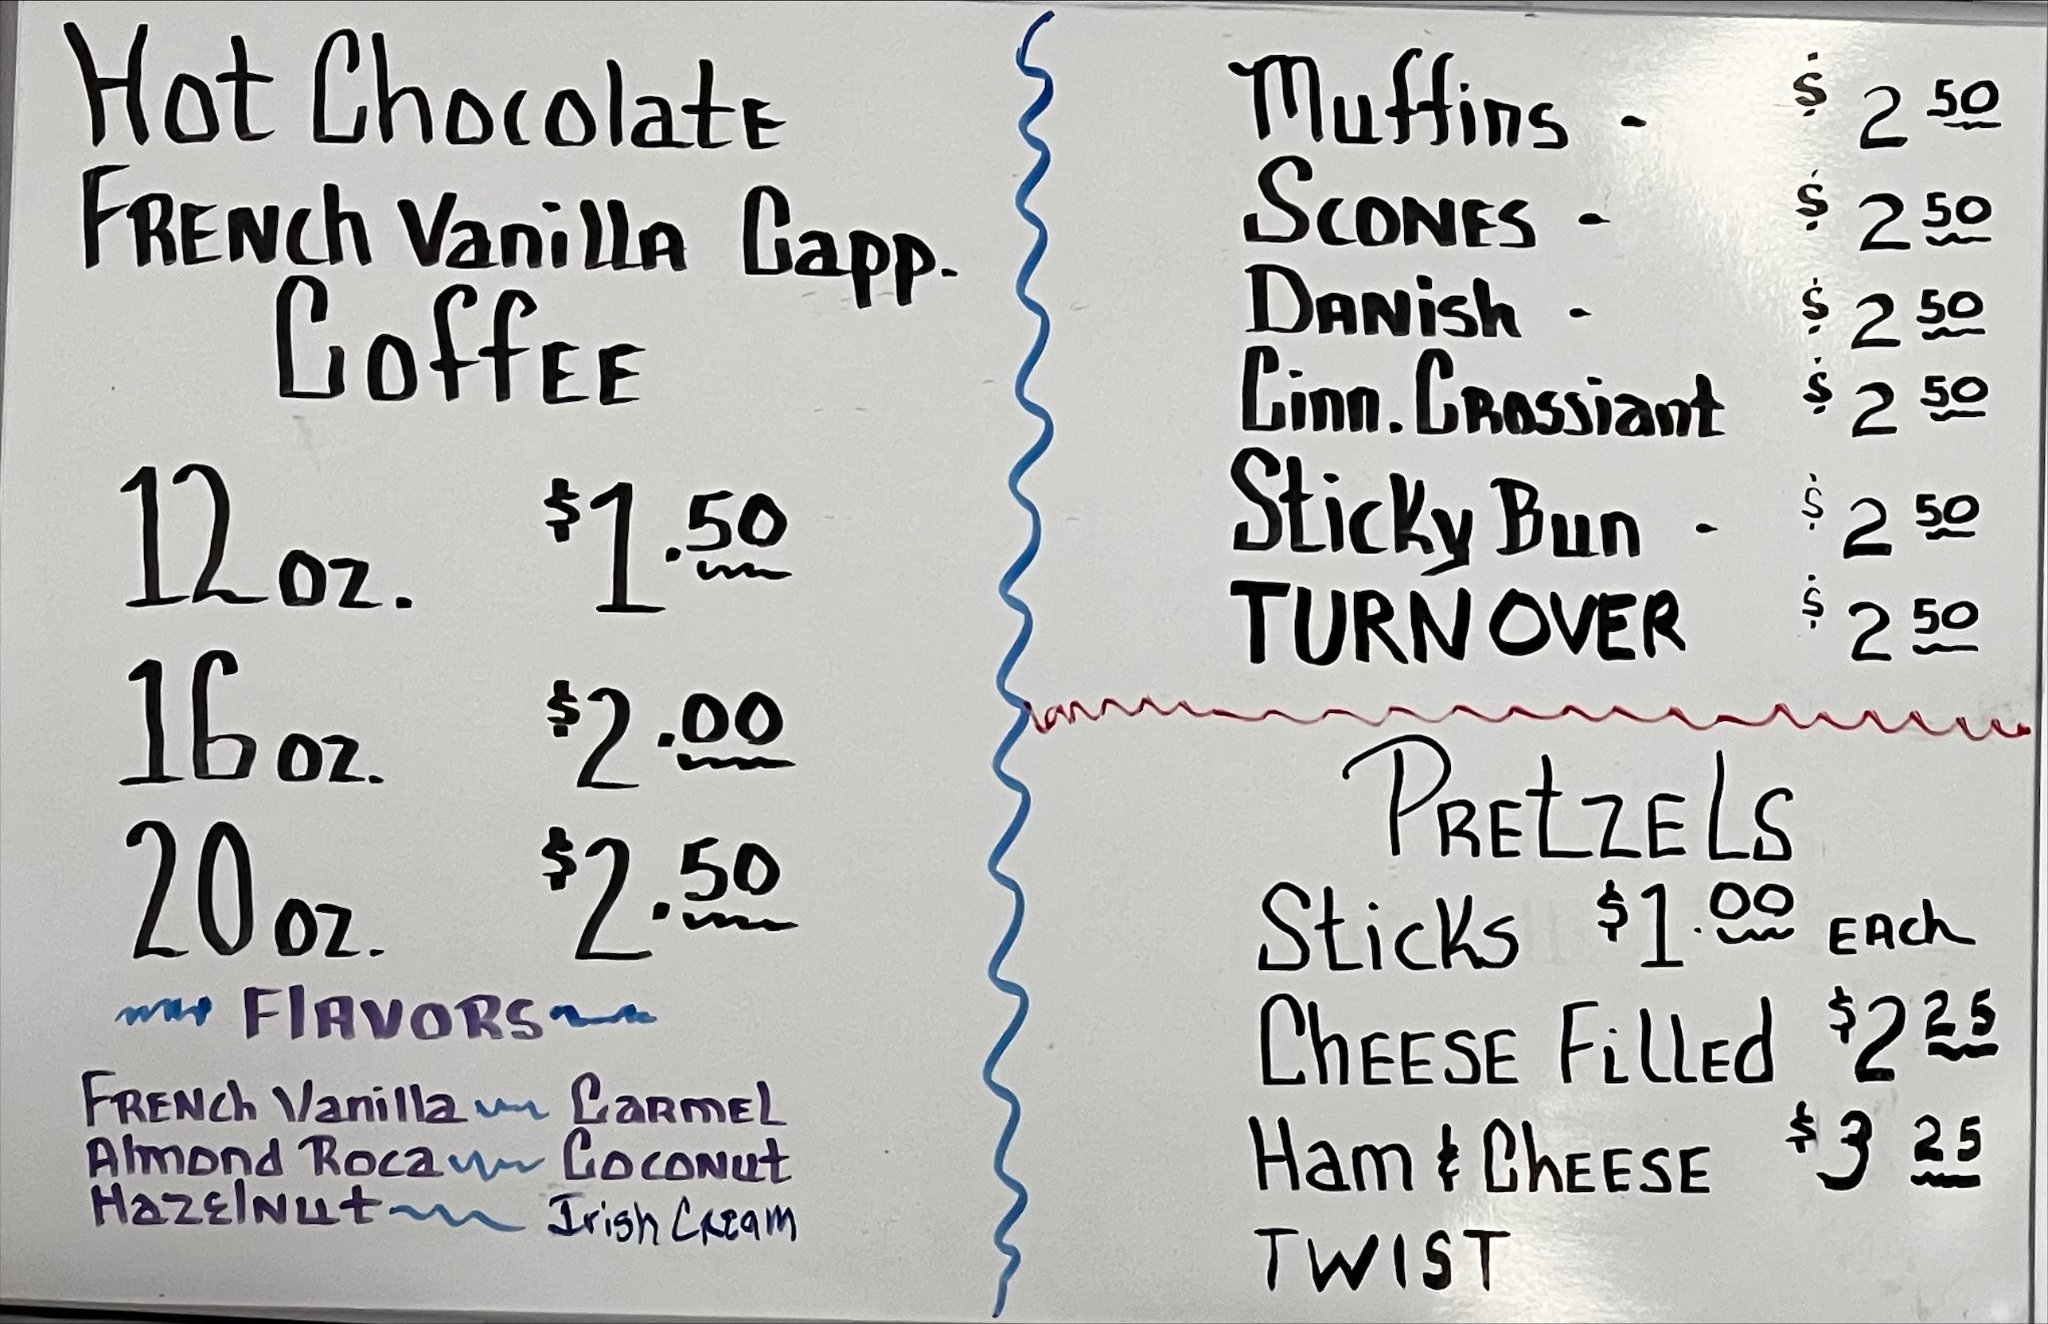 Hot Chocolate
FRENCh Vanilla Capp.
CoffEE
12 oz. $1.50
16 oz. $2.00
20 oz. $2.50
FlAVORS
FRENCh Vanilla CaRmEL
Almond Roca COCONut
HazelNut Irish CREam
Muffins - $2 50
SCONES - $2 50
DANish - $2 50
Cinn. CRossiant $2 50
Sticky Bun - $2 50
TURNOVER $2 50
PREtZELS
Sticks $1.00 EACh
ChEESE Filled $2 25
Ham & ChEESE $3 25
TWIST